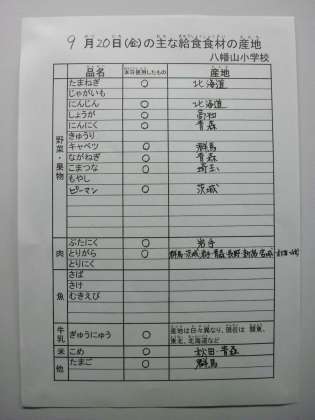 9月20日(金)の主な給食食材の産地
八幡山小学校
品名 本日使用したもの 産地
野菜・果物
たまねぎ ○ 北海道
じゃがいも
にんじん ○ 北海道
しょうが ○ 高知
にんにく ○ 青森
きゅうり
キャベツ ○ 群馬
ながねぎ ○ 青森
こまつな ○ 埼玉
もやし
ピーマン ○ 茨城
肉
ぶたにく ○ 岩手
とりがら ○ 群馬・茨城・岩手・青森・長野・新潟・宮城
とりにく
魚
さば
さけ
むきえび
牛乳
ぎゅうにゅう ○ 産地は日々異なり、現在は 関東、
東北、北海道など
米 こめ ○ 秋田・青森
他 たまご ○ 群馬